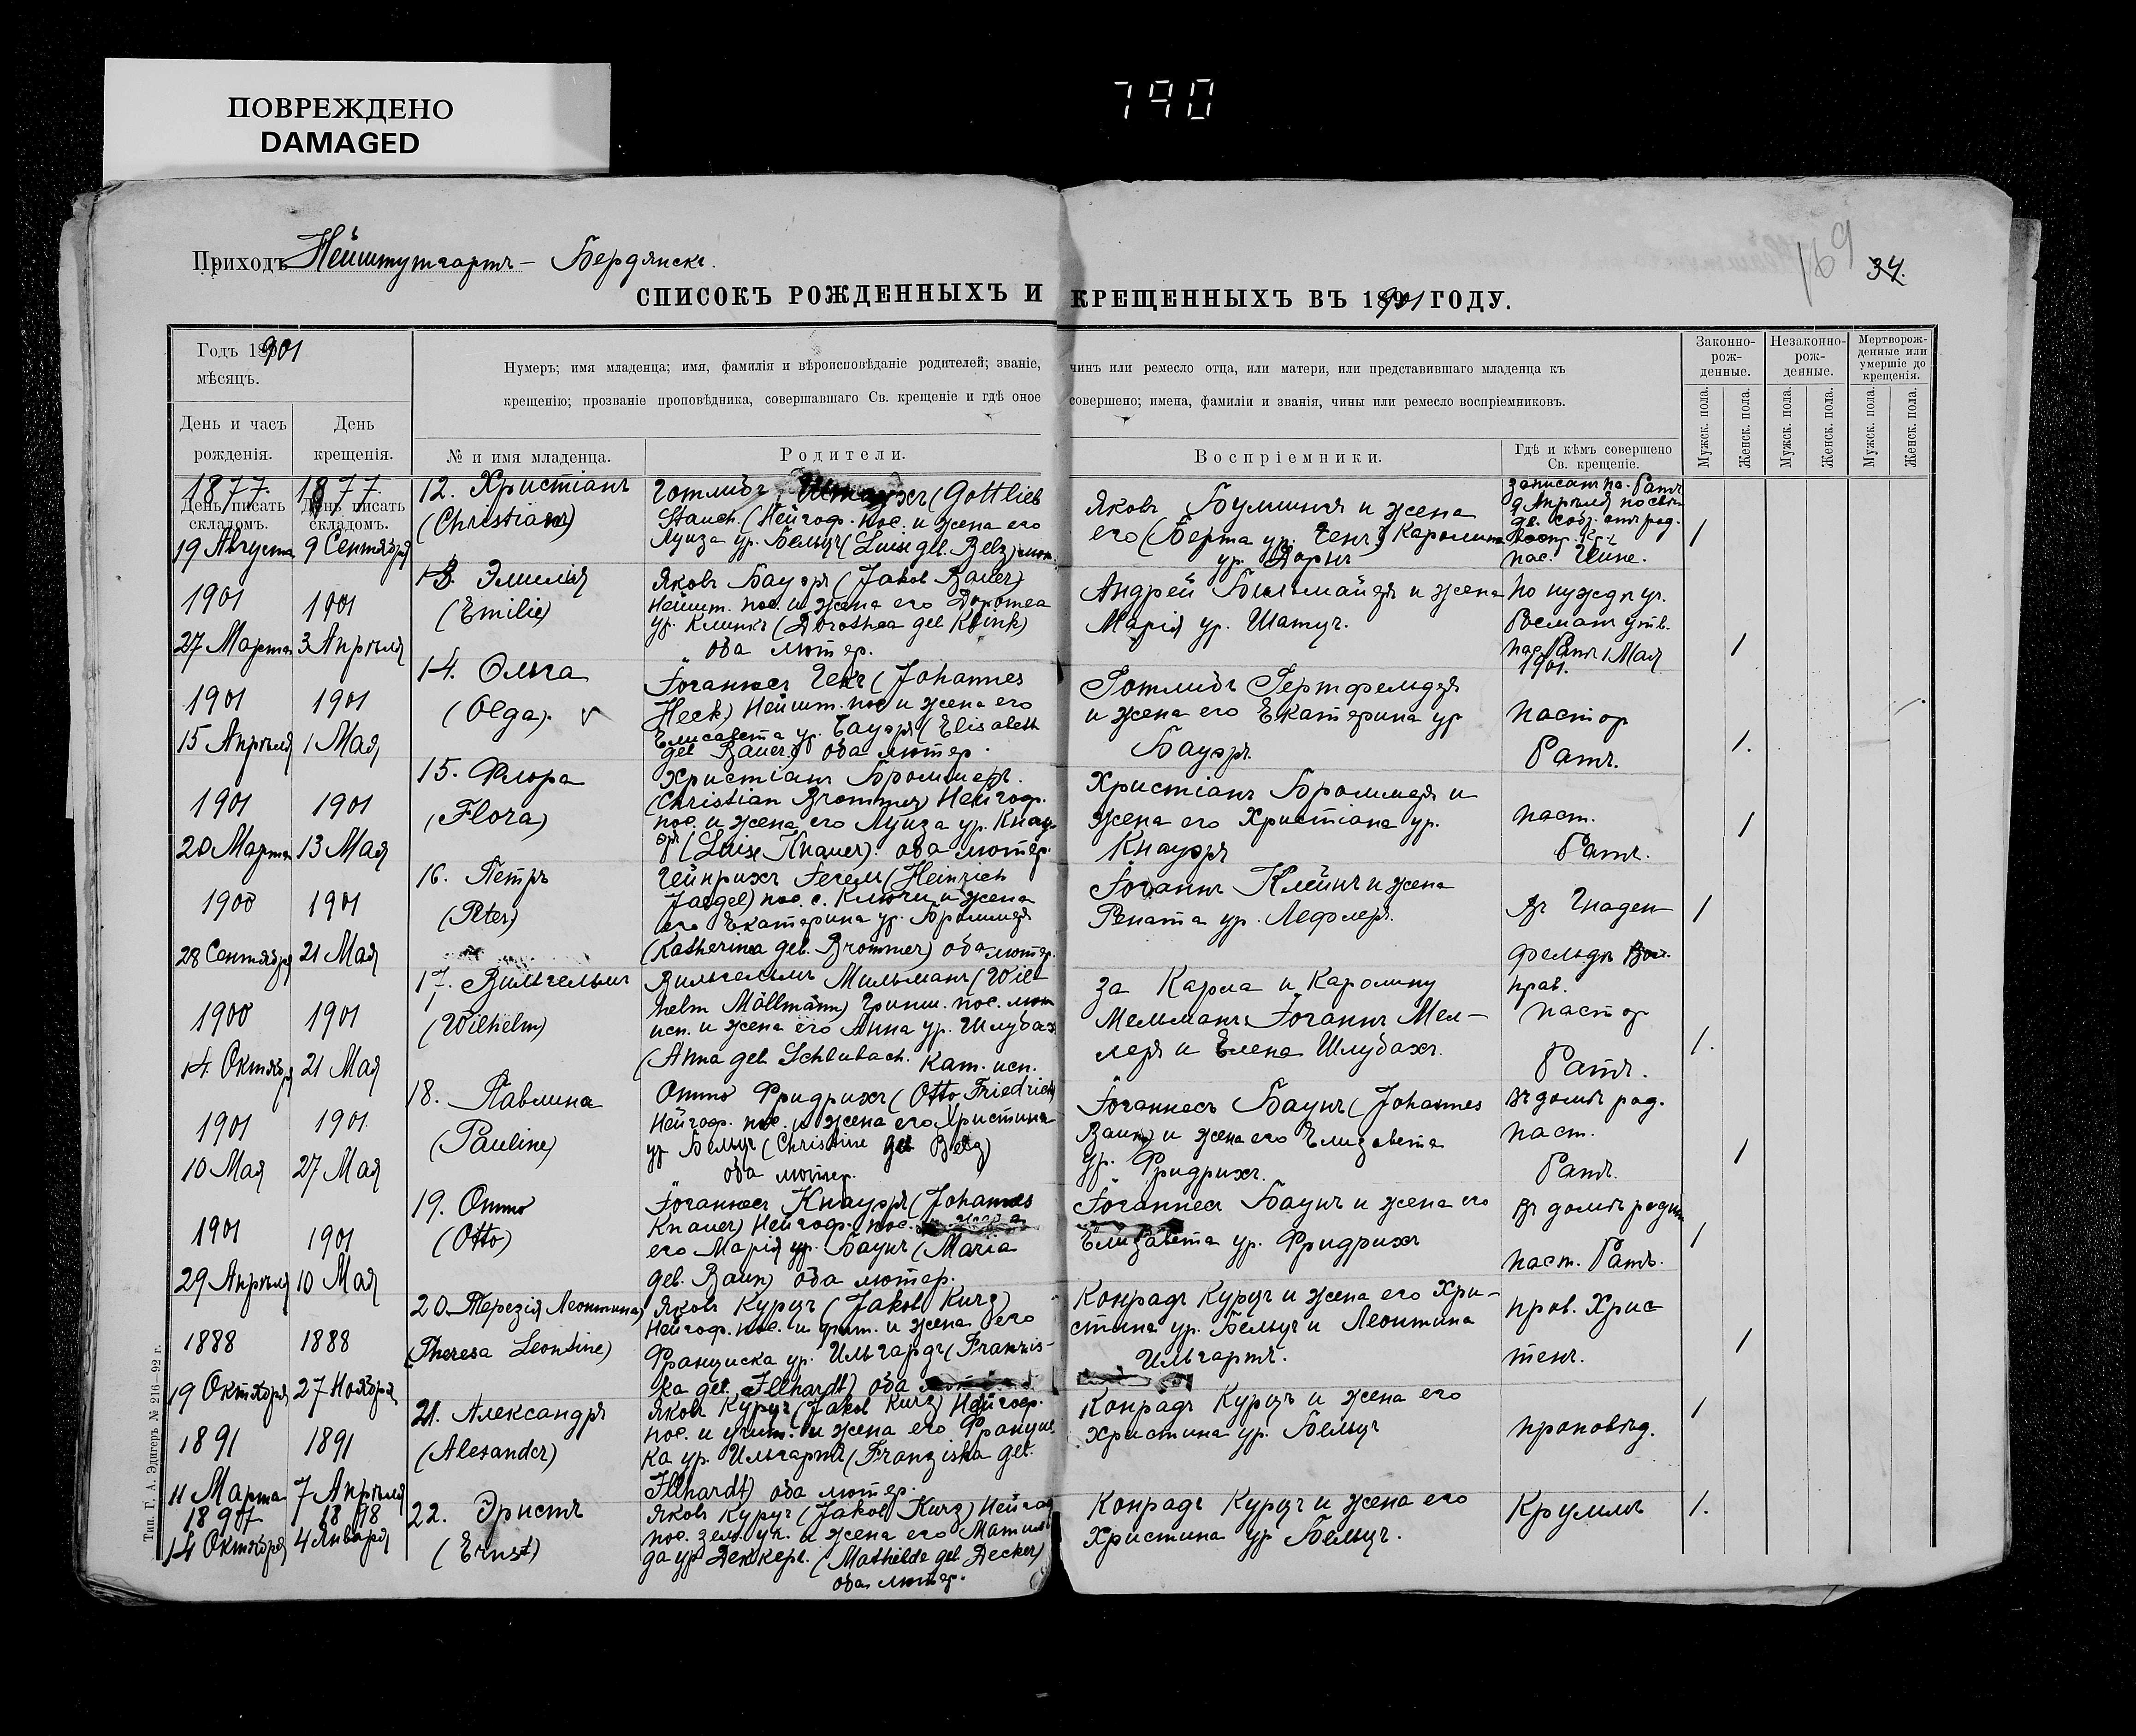 ПОВРЕЖДЕНО
DAMAGED
790
169
34.
Приходъ Нейштутгартъ - Бердянскъ.
СПИСОКЪ РОЖДЕННЫХЪ И КРЕЩЕННЫХЪ ВЪ 1901 ГОДУ.
Годъ 1901
мѣсяцъ.
День и часъ рожденія.
День крещенія.
Нумеръ; имя младенца; имя, фамилія и вѣроисповѣданіе родителей; званіе, чинъ или ремесло отца, или матери, или представившаго младенца къ
крещенію; прозваніе проповѣдника, совершавшаго Св. крещеніе и гдѣ оное совершено; имена, фамиліи и званія, чины или ремесло воспріемниковъ.
№ и имя младенца.
Родители.
Воспріемники.
Гдѣ и кѣмъ совершено Св. крещеніе.
Законно-рож-денные.
Незаконно-рож-денные.
Мертворож-денные или умершіе до крещенія.
Мужск. пола.
Женск. пола.
Мужск. пола.
Женск. пола.
Мужск. пола.
Женск. пола.
1877. 1877.
День писать складомъ.
День писать складомъ.
19 Августа 9 Сентября
12. Христіанъ
(Christian)
Готлибъ Штаухъ (Gottlieb
Stauch. (Нейгоф. пос. и жена его
Луиза ур. Бельцъ (Luise geb. Belz) лют.
Яковъ и жена
его (Берта ур. Генъ) Каролина
ур. Дорнъ
записан па. Ратъ
9 Апрѣля
пас. 
1
1901 1901
27 Марта 3 Апрѣля
13. Эмилія
(Emilie)
Яковъ Бауэръ (Jakob Bauer)
Нейшт. пос. и жена его Доротеа
ур. Клинкъ (Dorothea geb Klink)
оба лютер.
Андрей и жена
Марія ур. Шатцъ.
По нуждѣ уч.
утв.
пас. Ратъ 1 Мая
1901.
1
1901 1901
15 Апрѣля 1 Мая
14. Ольга
(Olga). v
Іоганнесъ Гекъ (Johannes
Heck) Нейшт. пос и жена его
Елисавета ур. Бауэръ (Elisabeth
geb Bauer) оба лютер.
Готлибъ Гертфельдеръ
и жена его Екатерина ур
Бауэръ.
пастор
Ратъ.
1.
1901 1901
20 Марта 13 Мая
15. Флора
(Flora)
Христіанъ Броммеръ.
(Christian Brommer) Нейгоф.
пос. и жена его Луиза ур. Кнау-
эръ (Luise Knauer). оба лютер.
Христіанъ Броммеръ и
жена его Христіана ур.
Кнауэръ
паст.
Ратъ.
1
1900 1901
28 Сентября 21 Мая
16. Петръ
(Peter)
Гейнрихъ Гегель (Heinrich
Jaegel) пос. с. Ключи и жена
его Екатерина ур. Броммеръ
(Katherina geb. Brommer) оба лютер.
Іоганнъ Клейнъ и жена
Рената ур. Лефлеръ.
Въ Гнаден-
фельдѣ
1
1900 1901
14 Октября 21 Мая
17. Вильгельмъ
(Wilhelm)
Вильгельмъ Мильманъ (Wil-
helm Möllmann) пос. лют
исп. и жена его Анна ур. Шлубахъ
(Anna geb Schlubach. Кат. исп.
за Карла и Каролину
Мельманъ Іоганнъ Мел-
леръ и Елена Шлубахъ.
прав.
пастор
Ратъ.
1.
1901 1901
10 Мая 27 Мая
18. Павлина
(Pauline)
Отто Фридрихъ (Otto Friedrich
Нейгоф. пос. и жена его Христина
ур Бельцъ (Christine geb Belz)
оба лютер.
Іоганнесъ Баунъ (Johannes
Baun) и жена его Елизавета
ур. Фридрихъ.
Въ домѣ род.
паст.
Ратъ.
1
1901 1901
29 Апрѣля 10 Мая
19. Отто
(Otto)
Іоганнесъ Кнауэръ (Johannes
Knauer) Нейгоф. пос.
его Марія ур. Баунъ (Maria
geb. Baun) оба лютер.
Іоганнесъ Баунъ и жена его
Елизавета ур. Фридрихъ
Въ домѣ родит
паст. Ратъ.
1
1888 1888
19 Октября 27 Ноября
20. Терезія Леонтина
(Theresa Leontine)
Яковъ Курцъ (Jakob Kurz)
Нейгоф. пос. и учит. и жена его
Франциска ур. Ильгардъ (Franzis-
ka geb. Illhardt) оба
Конрадъ Курцъ и жена его Хри-
стина ур. Бельцъ и Леонтина
Ильгартъ.
пров. Хрис
тенъ.
1
1891 1891
11 Марта 7 Апрѣля
21. Александръ
(Alexander)
Яковъ Курцъ (Jakob Kurz) Нейгоф.
пос. и учит. и жена его Францис
ка ур. Ильгартъ (Franziska geb.
Illhardt) оба лютер.
Конрадъ Курцъ и жена его
Христина ур. Бельцъ
проповѣд.
1
1897 1898
14 Октября 4 Января
22. Эрнстъ
(Ernst)
Яковъ Курцъ (Jakob Kurz) Нейгоф
пос. зем. уч. и жена его Матиль
да ур Деккеръ. (Mathilde geb Decker)
оба лютер.
Конрадъ Курцъ и жена его
Христина ур Бельцъ.
Круммъ
1.
Тип. Г. А. Эдигеръ № 216—92 г.